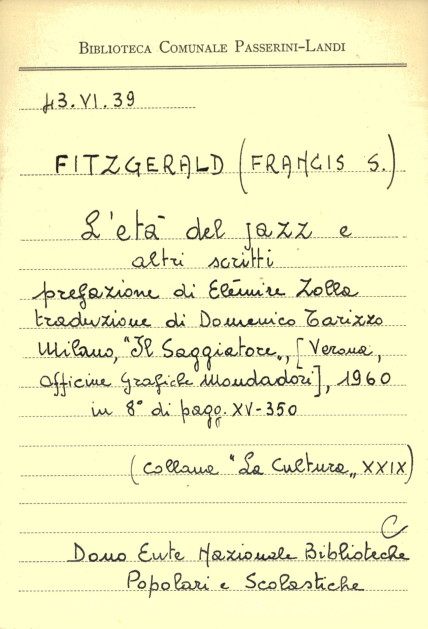 BIBLIOTECA COMUNALE PASSERINI-LANDI
43.VI.39
FITZGERALD (FRANCIS S.)
L'età del jazz e
altri scritti
prefazione di Elémire Zolla
traduzione di Domenico Tarizzo
Milano, "Il Saggiatore„, [Verona,
Officine Grafiche Mondadori], 1960
in 8° di pagg. XV-350
(Collana "La Cultura„ XXIX)
C
Dono Ente Nazionale Biblioteche
Popolari e Scolastiche